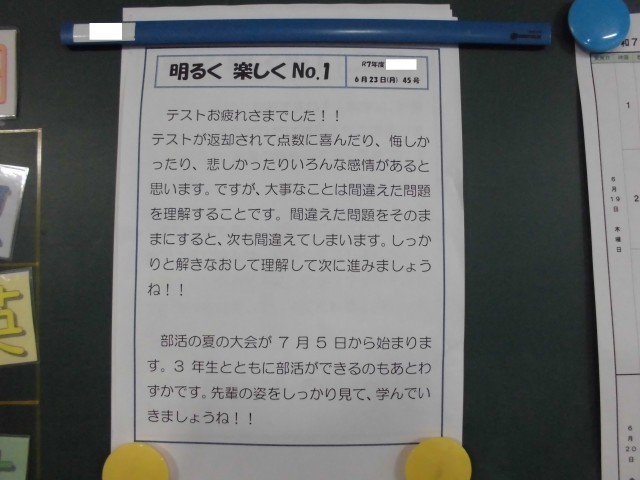 明るく 楽しくNo.1
R7年度
6月23日(月) 45号
テストお疲れさまでした！！
テストが返却されて点数に喜んだり、悔しか
ったり、悲しかったりいろんな感情があると
思います。ですが、大事なことは間違えた問題
を理解することです。間違えた問題をそのま
まにすると、次も間違えてしまいます。しっか
りと解きなおして理解して次に進みましょう
ね！！
部活の夏の大会が7月5日から始まりま
す。3年生とともに部活ができるのもあとわ
ずかです。先輩の姿をしっかり見て、学んでい
きましょうね！！
英
和7
1
2
6月19日 木曜日
6月20